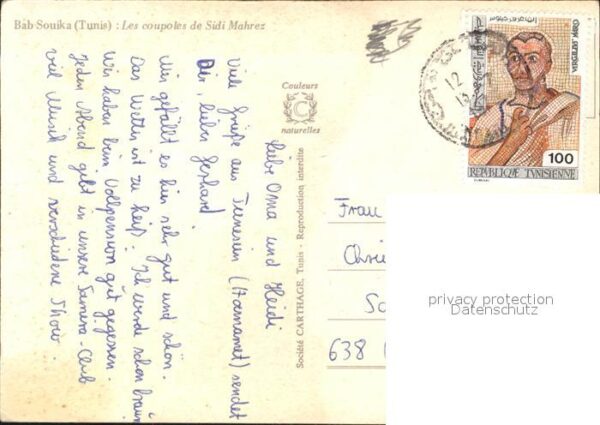 Bab Souika (Tunis) : Les coupoles de Sidi Mahrez
Liebe Oma und Heidi
Viele Grüße aus Tunesien (Hamamet) sendet
Dir, lieber Gerhard.
Mir gefällt es hier sehr gut und schön.
Das Wetter ist zu heiß. Ich werde schon braun
Wir haben beim Vollpension gut gegessen.
Jeden Abend gibt in unsere Samera-Club
viel Musik und verschiedene Show.
Couleurs
C
naturelles
Société CARTHAGE, Tunis - Reproduction interdite
100
REPUBLIQUE TUNISIENNE
12
Frau
Chri
Sc
638
privacy protection
Datenschutz